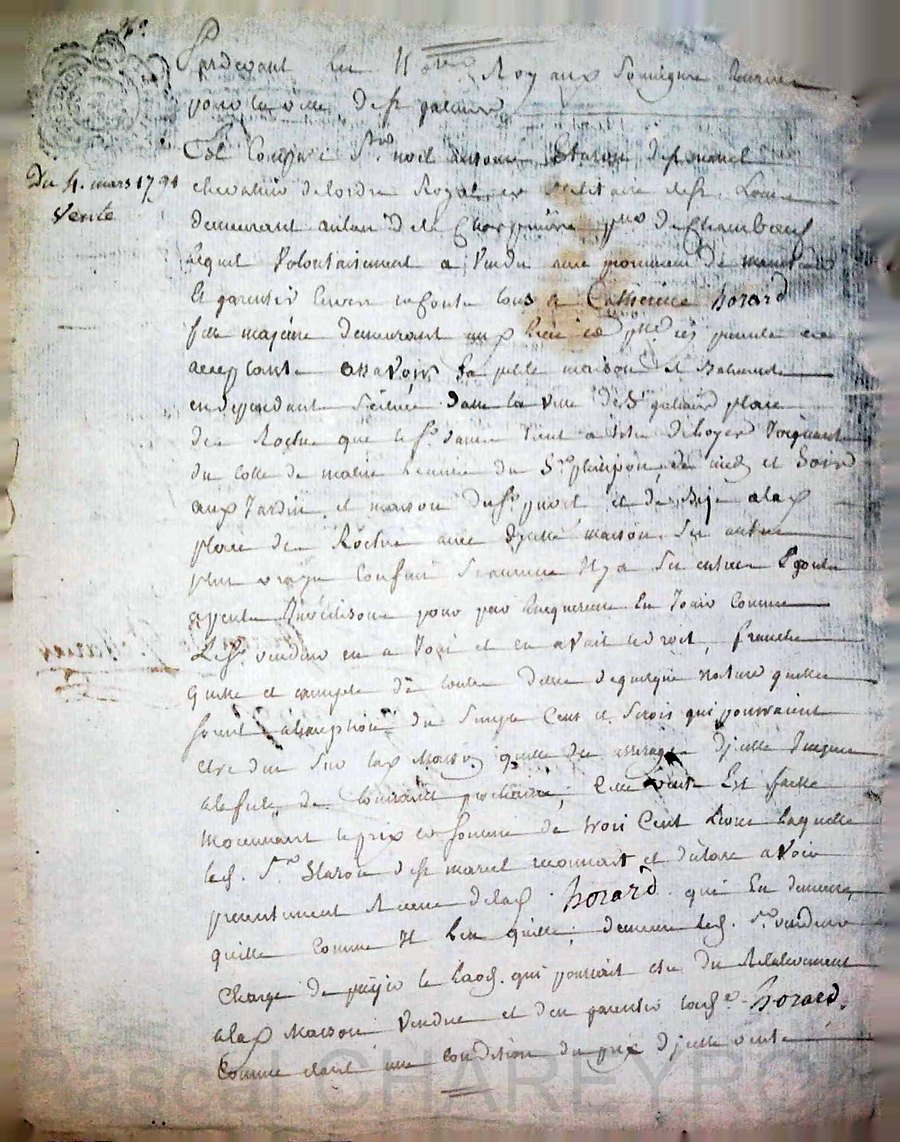 Pardevant les No.res Royaux soussignés
pour la ville de St galmier
Est Comparu Sr. noel antoine Staron de St marcel
chevalier de lordre Royal et militaire de St Louis
demeurant au lieu de la Charpinière psse de Chambœuf
lequel Volontairement a Vendu avec promesse de maintenir
Et garentir Envers et contre tous a Catherine horard
fille majeure demeurant aux lieu et psse ici présente et
acceptante assavoir la petite maison et Batiment
en dependant Située dans la ville de St galmier place
de la Roche que le Sr
du cotté de matin
aux Jardin et maison du Sr et de Bize a lad.
place de la Roche avec dicelle maison Ses autres
plus vrays Confins Si aucuns Il y a Ses entrées Egouts
pour par lacquereuse En Jouir Comme
Led. Sr. vendeur en a Joui et en avait le droit, franche
quitte et exempte de toutes dettes de quelque nature quelles
soient a lexception du Simple Cens et Servis qui pourraient
etre dus Sur lad. Maison quitte des arrérages dicelle Jusques
a la fete de prochaine; Cette vente Est faite
moyennant le prix et somme de trois Cent Livres Laquelle
led. Sr. Staron de St marcel reconnait et déclare avoir
presentement Recue de lad. horard qui En demeure
quitte comme Il len quitte; demeure led. Sr. vendeur
Chargé de payer le Laods qui pourrait etre du Relativement
a lad. Maison Vendue et den garentir lad. horard.
Comme etant une condition du prix dicelle vente
Du 4. mars 1791
Vente
Pascal CHAREYRON